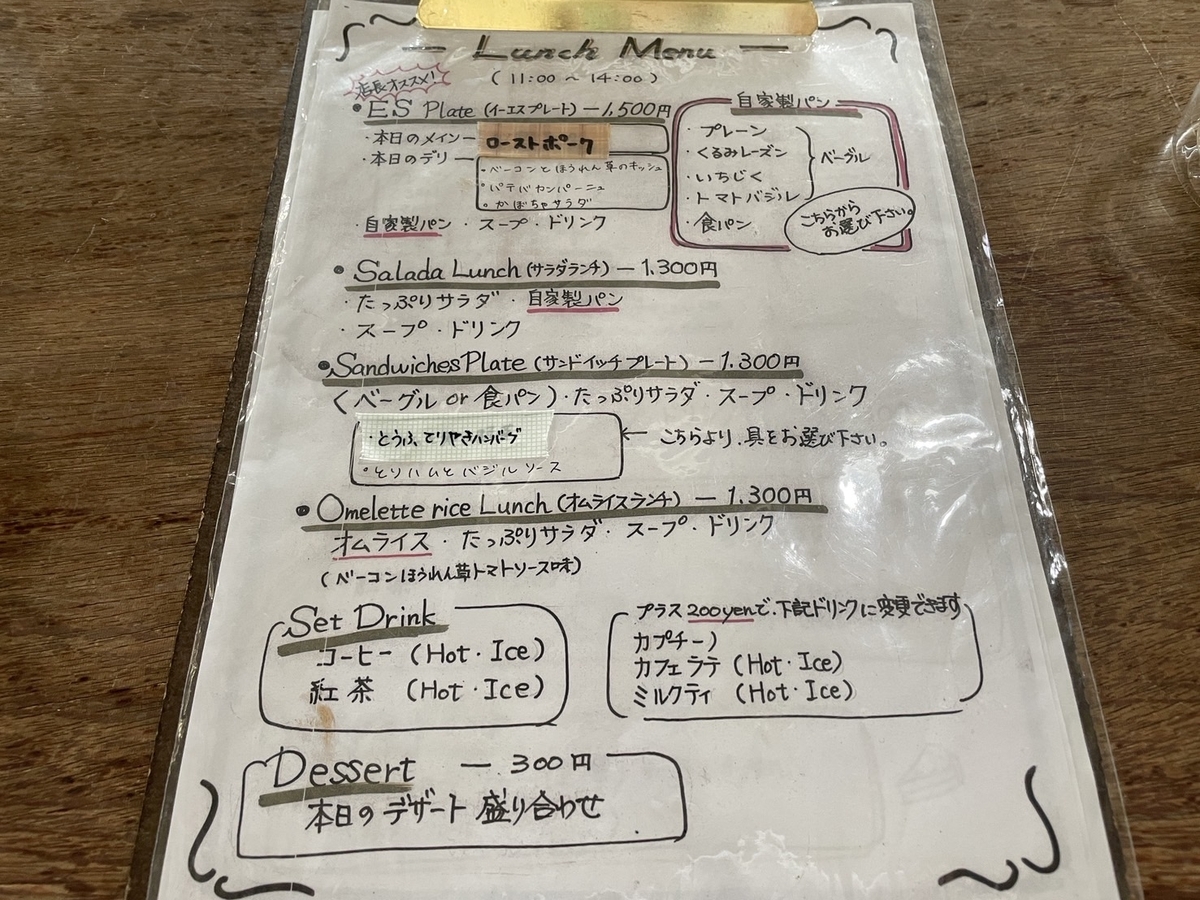 Lunch Menu
(11:00 ~ 14:00)
店長オススメ!
• ES Plate (イーエスプレート) — 1,500円
・本日のメイン — ローストポーク
・本日のデリー
・ベーコンとほうれん草のキッシュ
・パテドカンパーニュ
・かぼちゃサラダ
・自家製パン ・スープ・ドリンク
自家製パン
・プレーン
・くるみレーズン
・いちじく
・トマトバジル
ベーグル
・食パン
こちらから
お選び下さい。
• Salada Lunch (サラダランチ) — 1.300円
・たっぷりサラダ ・自家製パン
・スープ・ドリンク
• Sandwiches Plate (サンドイッチプレート) — 1.300円
(ベーグル or 食パン)・たっぷりサラダ・スープ・ドリンク
・とうふ、てりやきハンバーグ
・とりハムとバジルソース
← こちらより、具をお選び下さい。
• Omelette rice Lunch (オムライスランチ) — 1.300円
オムライス ・たっぷりサラダ・スープ・ドリンク
(ベーコンほうれん草トマトソース味)
Set Drink
コーヒー (Hot・Ice)
紅茶 (Hot・Ice)
プラス200yenで、下記ドリンクに変更できます
カプチーノ
カフェラテ (Hot・Ice)
ミルクティ (Hot・Ice)
Dessert — 300円
本日のデザート盛り合わせ